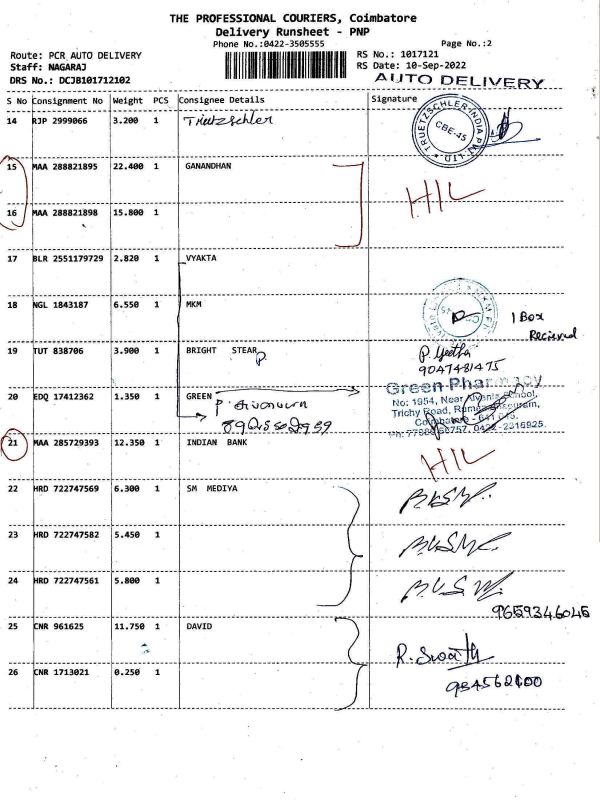 THE PROFESSIONAL COURIERS, Coimbatore
Delivery Runsheet - PNP
Phone No.:0422-3505555 Page No.:2
Route: PCR AUTO DELIVERY RS No.: 1017121
Staff: NAGARAJ RS Date: 10-Sep-2022
DRS No.: DCJB101712102 AUTO DELIVERY
S No Consignment No Weight PCS Consignee Details Signature
14 RJP 2999066 3.200 1 Truetzschler TRUETZSCHLER INDIA PVT. LTD. CBE-45
15 MAA 288821895 22.400 1 GANANDHAN
16 MAA 288821898 15.800 1 H/L
17 BLR 2551179729 2.820 1 VYAKTA
18 NGL 1843187 6.550 1 MKM 1 Box
Recieved
19 TUT 838706 3.900 1 BRIGHT STEAR P. Geetha
9047481475
20 EDQ 17412362 1.350 1 GREEN Green Pharmacy
No: 1954, Near School,
Trichy Road,
Coimbatore - 641 045.
0422-2316925
21 MAA 285729393 12.350 1 INDIAN BANK H/L
22 HRD 722747569 6.300 1 SM MEDIYA
23 HRD 722747582 5.450 1
24 HRD 722747561 5.800 1
9659346045
25 CNR 961625 11.750 1 DAVID
26 CNR 1713021 0.250 1